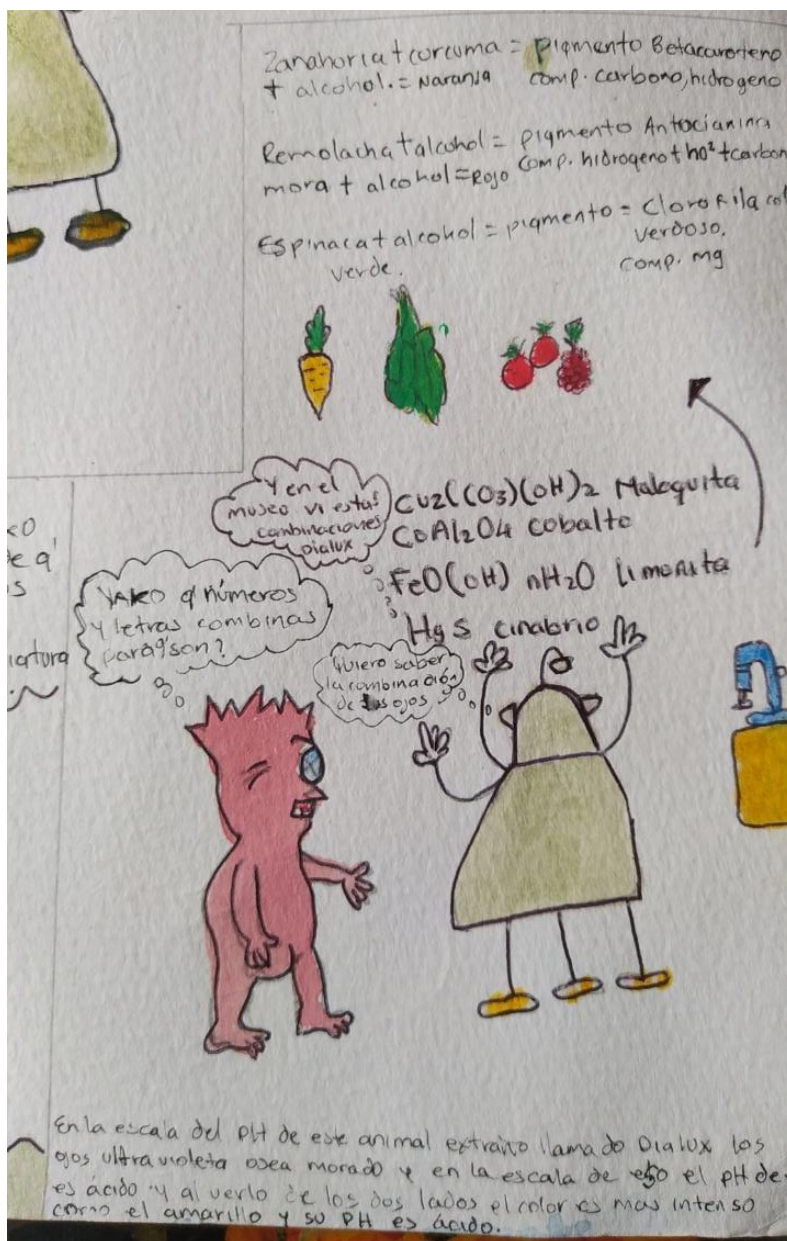 Zanahoria + corcuma = pigmento Betacaroteno
+ alcohol. = Naranja comp. carbono, hidrogeno
Remolacha + alcohol = pigmento Antocianina
mora + alcohol = Rojo comp. hidrogeno + ho² + carbon
Espinaca + alcohol = pigmento = Clorofila col
verde. verdoso.
comp. mg
Y en el
museo vi estas
combinaciones
Dialux
Cu2(CO3)(OH)2 Malaquita
CoAl2O4 cobalto
FeO(OH) nH2O limonita
HgS cinabrio
YAKO q' números
y letras combinas
para q' son?
Quiero saber
la combinación
de tus ojos
iatura
En la escala del PH de este animal extraño llamado Dialux los
ojos ultravioleta osea morado y en la escala de eso el pH de
es ácido y al verlo de los dos lados el color es mas intenso
como el amarillo y su PH es ácido.